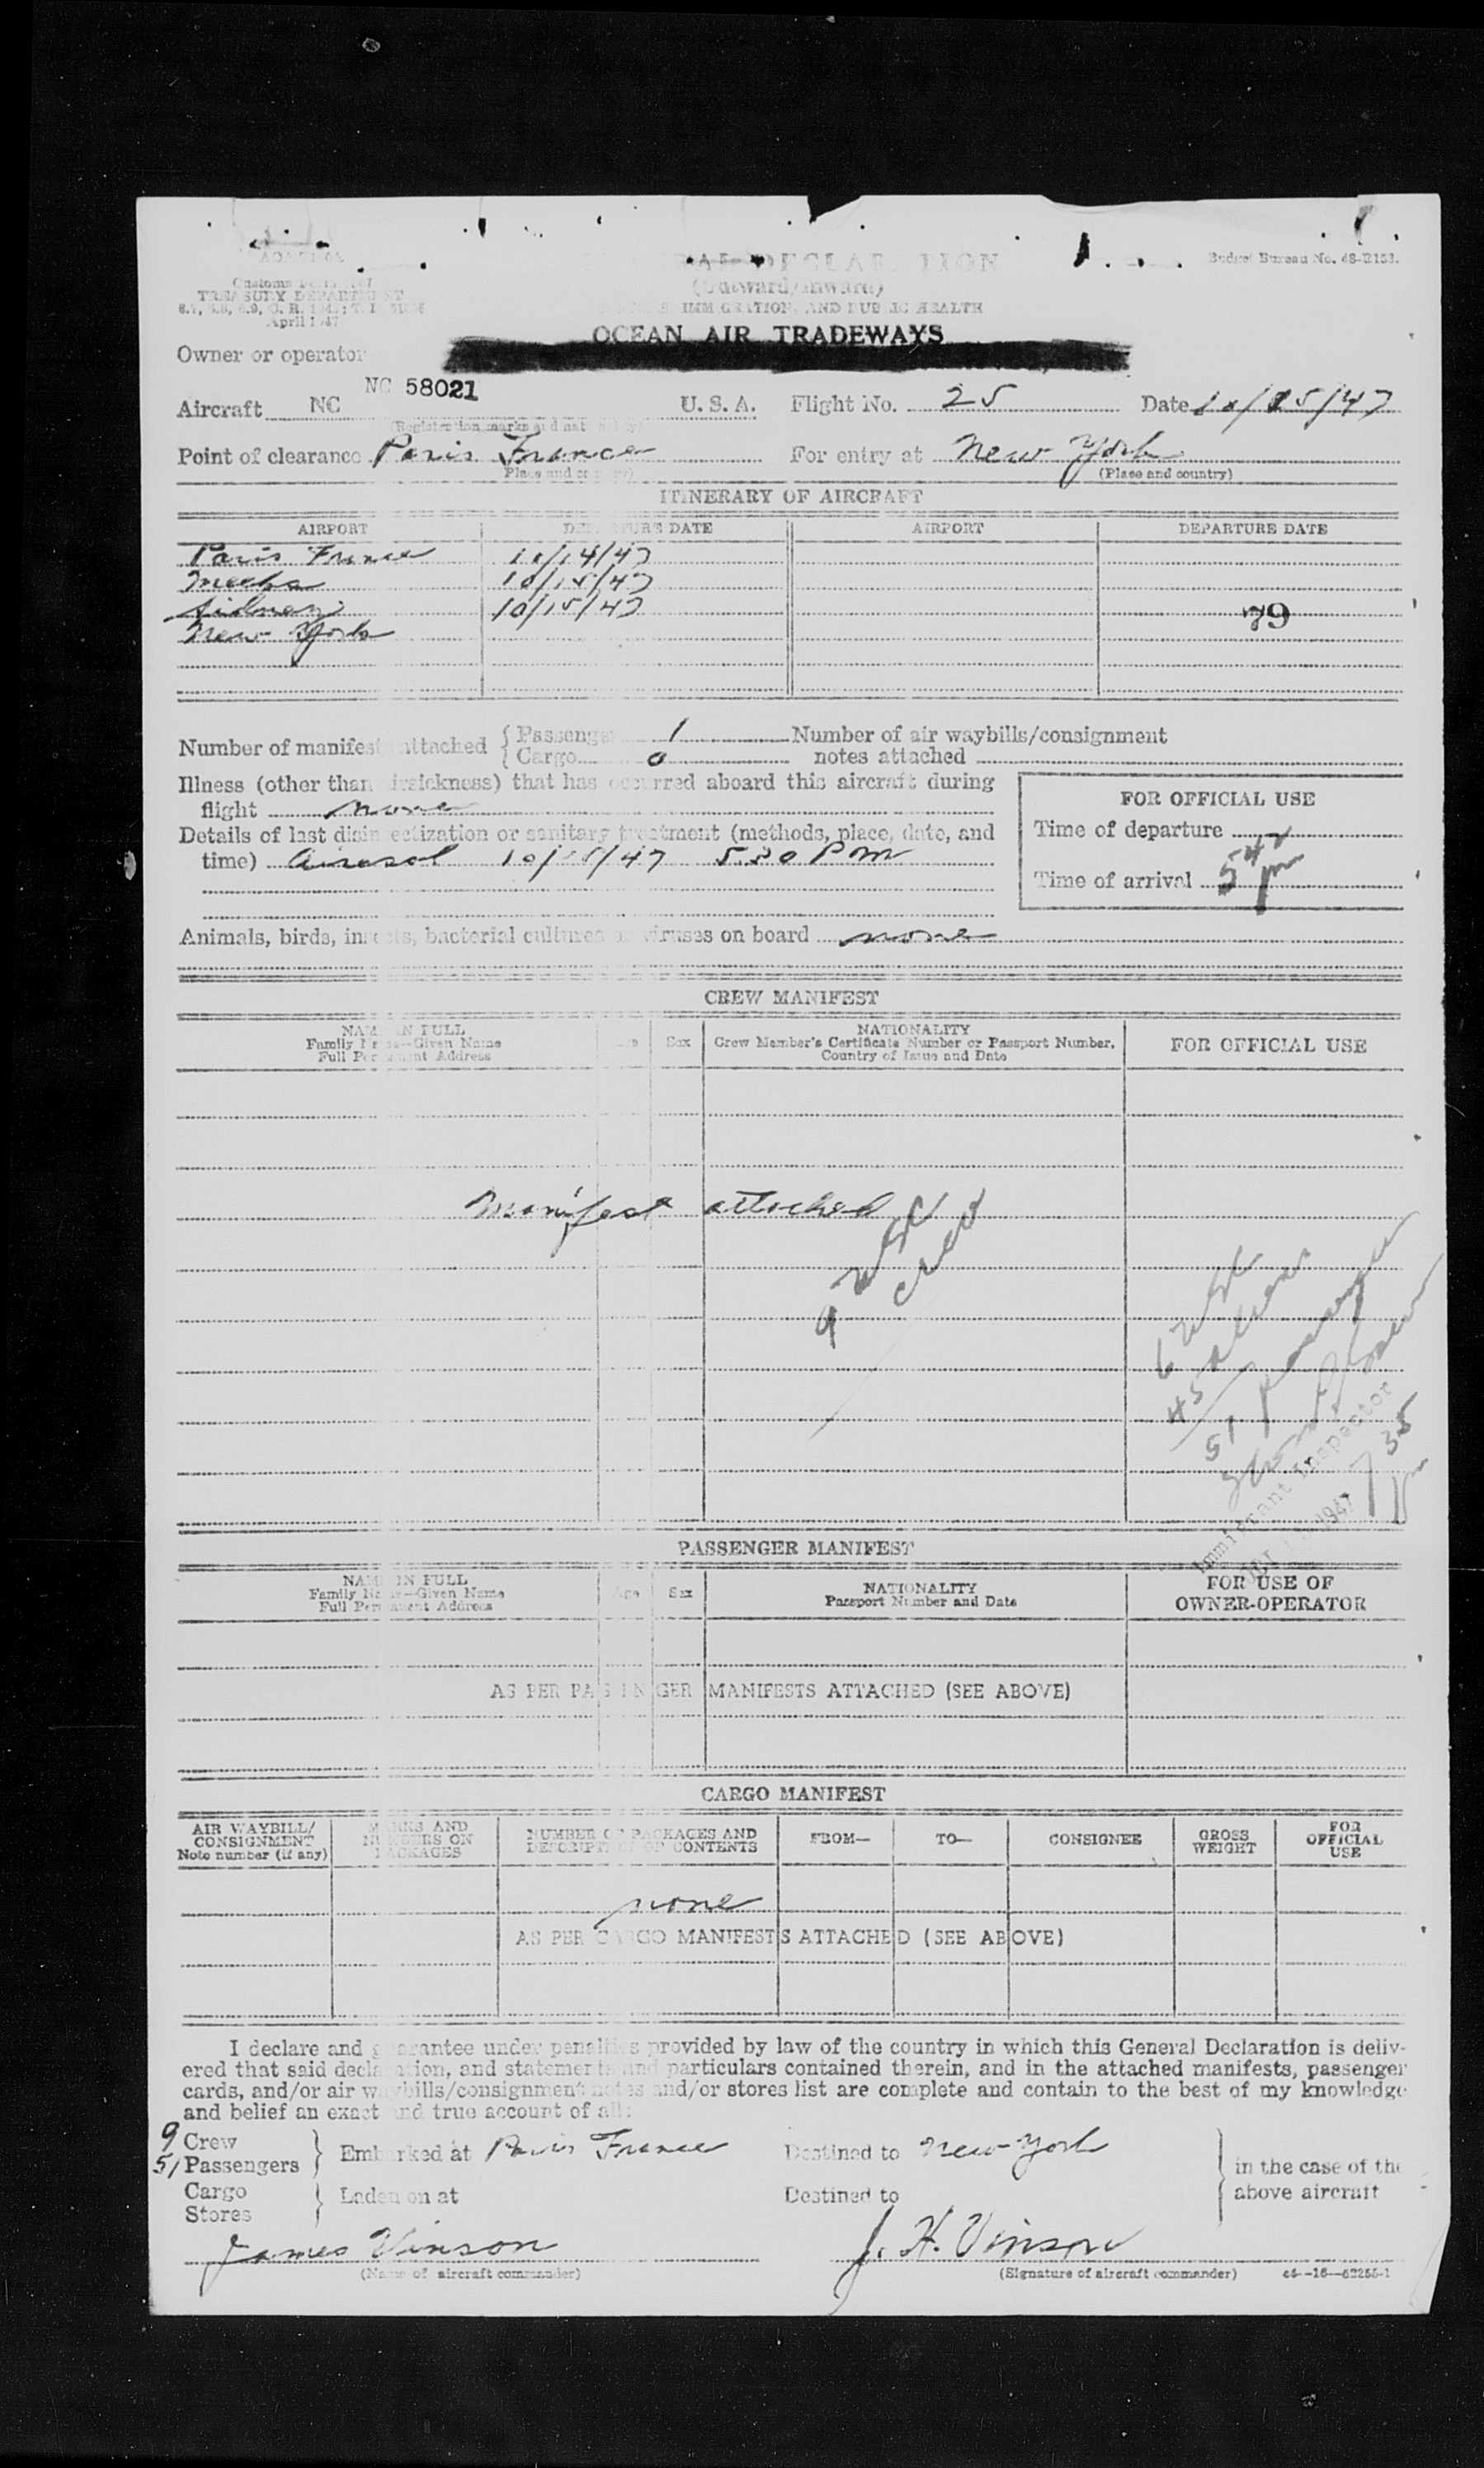 Budget Bureau No. 48-R153.
TREASURY DEPARTMENT
April 1947
(Outward/Inward)
IMMIGRATION, AND PUBLIC HEALTH
OCEAN AIR TRADEWAYS
Owner or operator
NC 58021
Aircraft NC U. S. A. Flight No. 25 Date 10/15/47
Point of clearance Paris France For entry at New York
(Place and country) (Place and country)
ITINERARY OF AIRCRAFT
AIRPORT DEPARTURE DATE AIRPORT DEPARTURE DATE
Paris France 10/14/47
Meeks 10/15/47
Sidney 10/15/47 79
New York
Number of manifests attached { Passenger 1 Number of air waybills/consignment
{ Cargo 0 notes attached
Illness (other than airsickness) that has occurred aboard this aircraft during
flight none
FOR OFFICIAL USE
Details of last disinsectization or sanitary treatment (methods, place, date, and
time) Airosol 10/15/47 5:30 PM
Time of departure
Time of arrival 5 42 pm
Animals, birds, insects, bacterial cultures or viruses on board none
CREW MANIFEST
NAME IN FULL
Family Name—Given Name
Full Permanent Address
Age Sex
NATIONALITY
Crew Member's Certificate Number or Passport Number,
Country of Issue and Date
FOR OFFICIAL USE
Manifest attached
9 USC
crew
6 USC
45 aliens
51 passengers
Immigrant Inspector
7 35 pm
1947
PASSENGER MANIFEST
NAME IN FULL
Family Name—Given Name
Full Permanent Address
Age Sex
NATIONALITY
Passport Number and Date
FOR USE OF
OWNER-OPERATOR
AS PER PASSENGER MANIFESTS ATTACHED (SEE ABOVE)
CARGO MANIFEST
AIR WAYBILL/
CONSIGNMENT
Note number (if any)
MARKS AND
NUMBERS ON
PACKAGES
NUMBER OF PACKAGES AND
DESCRIPTION OF CONTENTS
FROM— TO— CONSIGNEE
GROSS
WEIGHT
FOR
OFFICIAL
USE
none
AS PER CARGO MANIFESTS ATTACHED (SEE ABOVE)
I declare and guarantee under penalties provided by law of the country in which this General Declaration is deliv-
ered that said declaration, and statements and particulars contained therein, and in the attached manifests, passenger
cards, and/or air waybills/consignment notes and/or stores list are complete and contain to the best of my knowledge
and belief an exact and true account of all:
9 Crew
51 Passengers } Embarked at Paris France Destined to New York } in the case of the
Cargo
Stores } Laden on at Destined to above aircraft
James Vinson J. H. Vinson
(Name of aircraft commander) (Signature of aircraft commander)